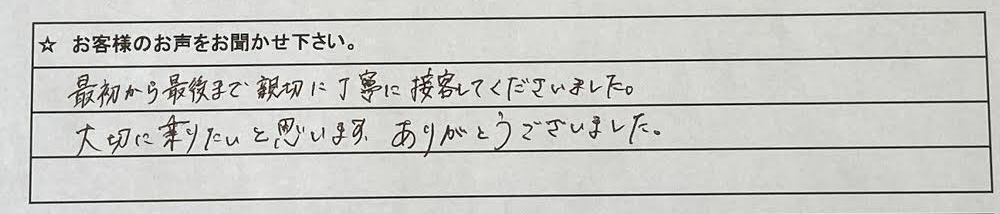 ☆ お客様のお声をお聞かせ下さい。
最初から最後まで親切に丁寧に接客してくださいました。
大切に乗りたいと思います。ありがとうございました。